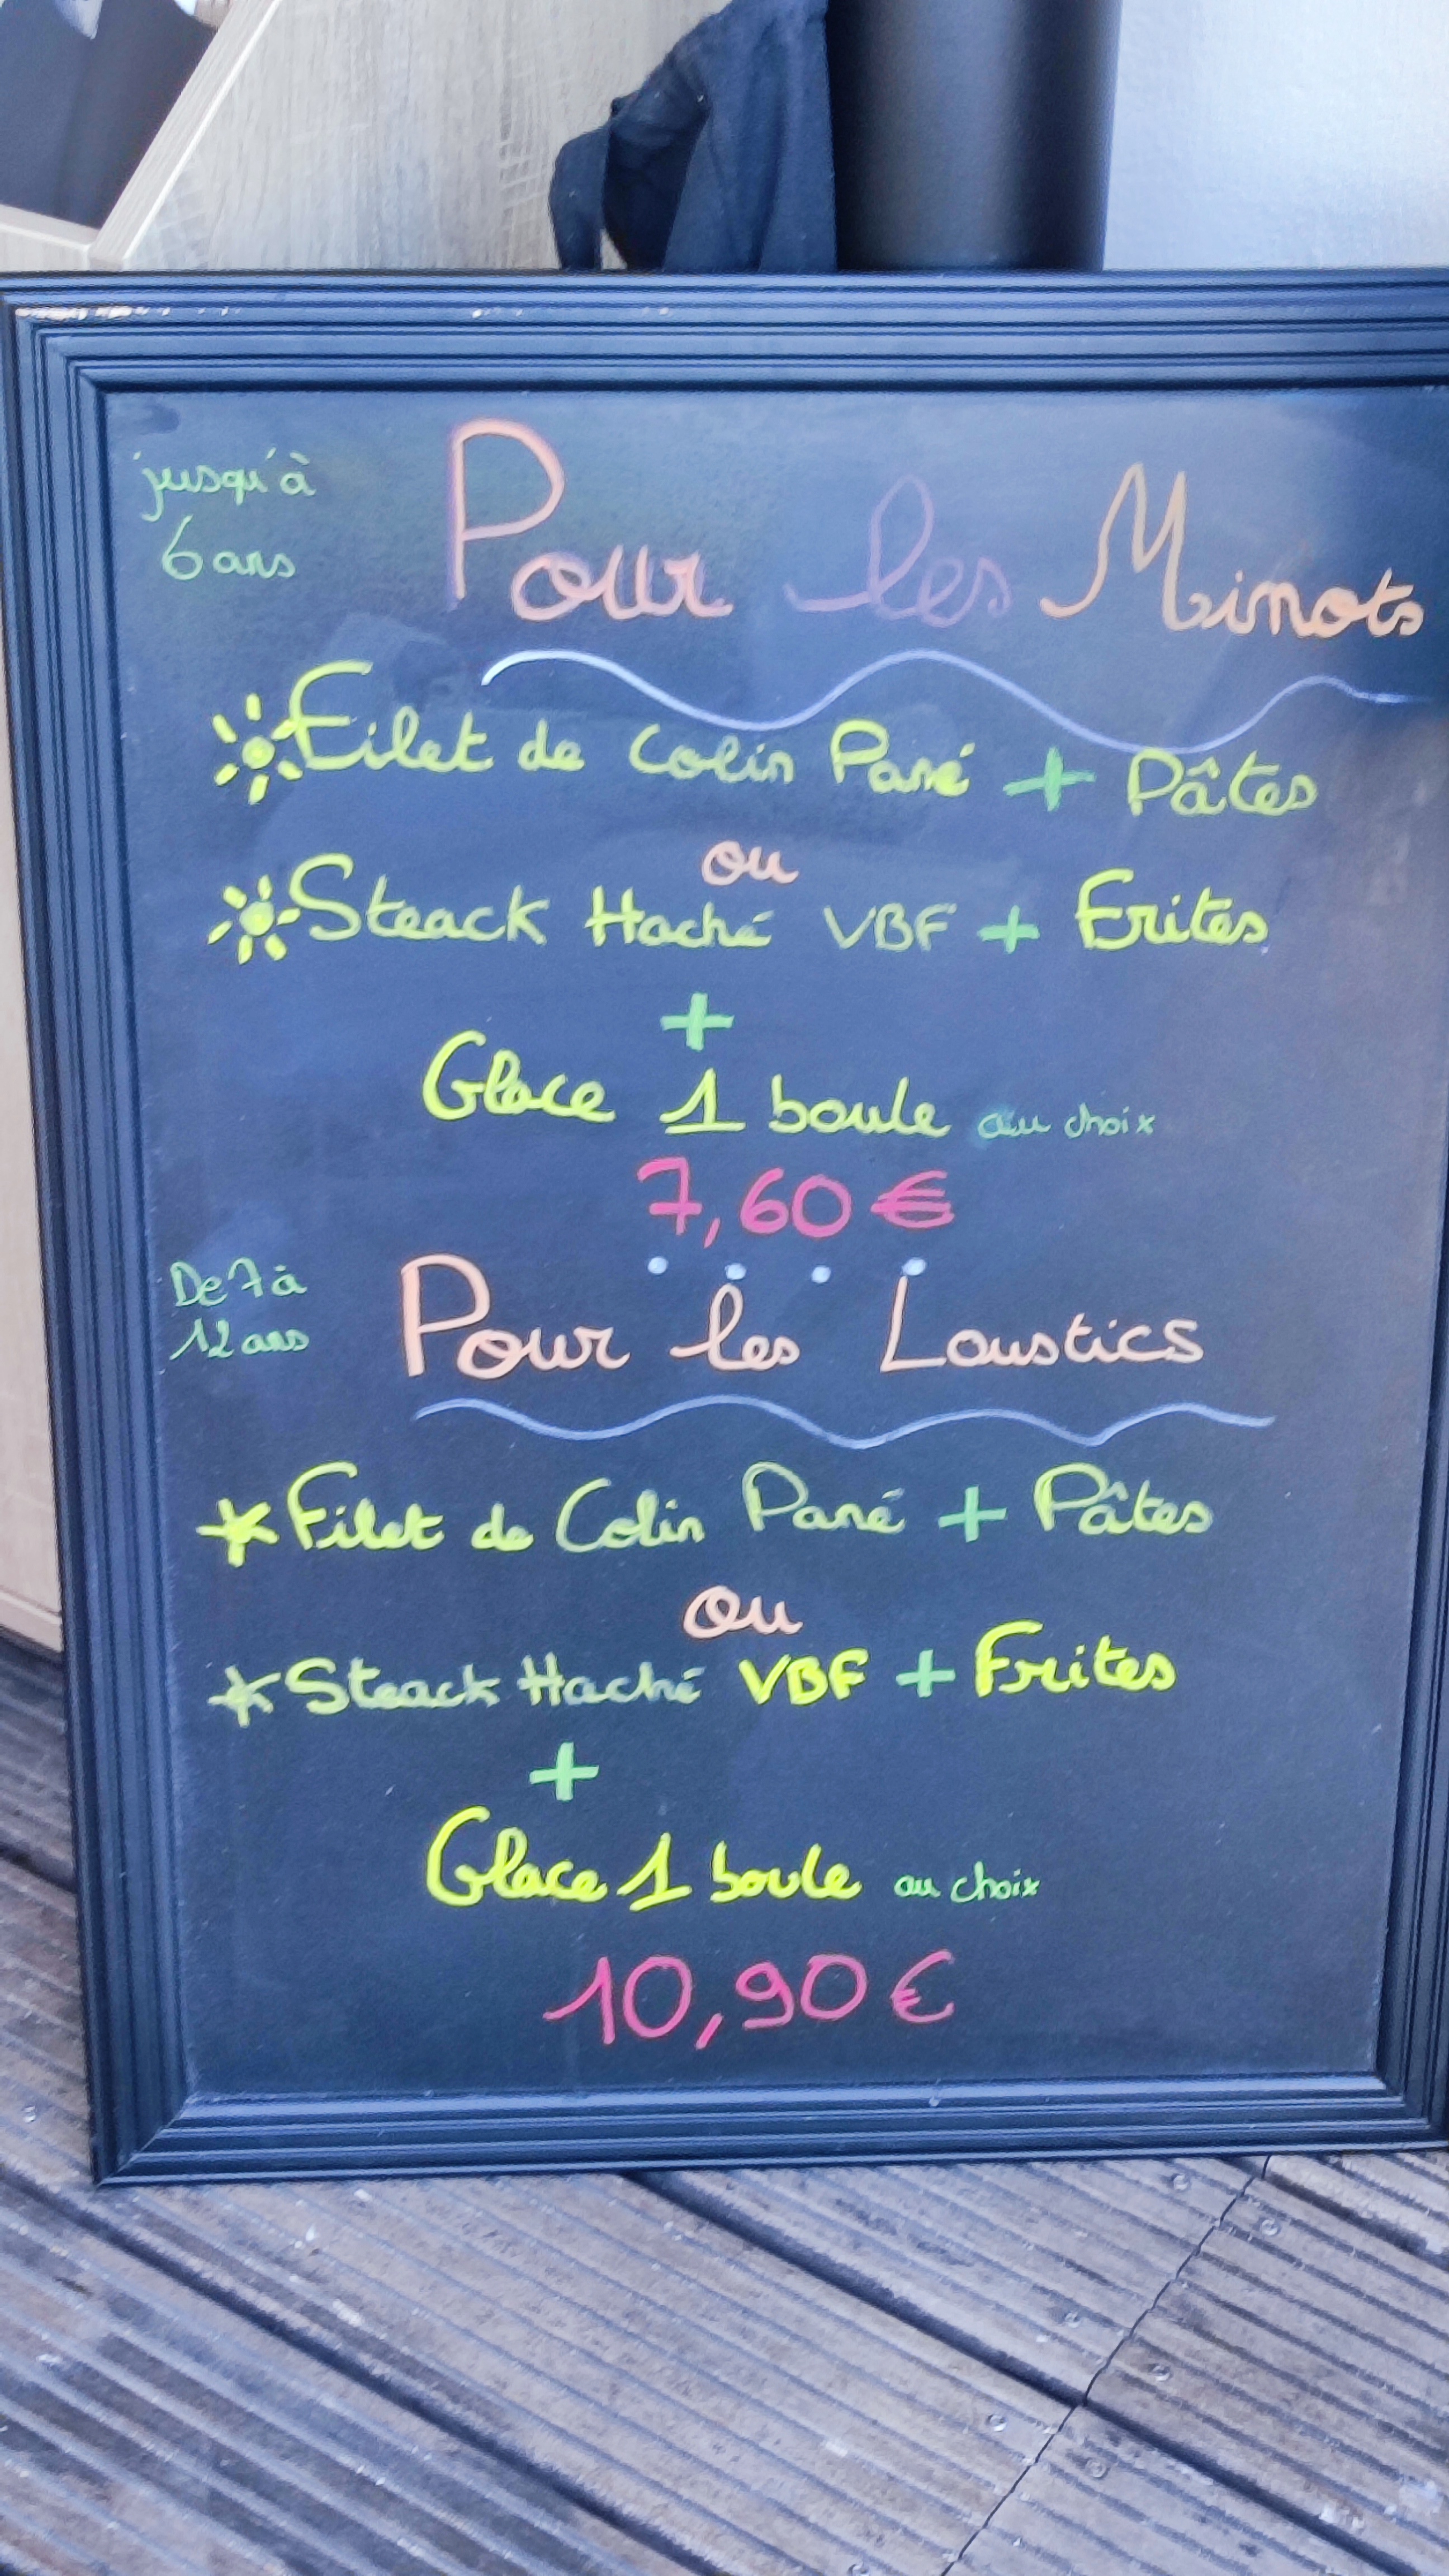 jusqu'à
6 ans
Pour les Minots
Filet de Colin Pané + Pâtes
ou
Steack Haché VBF + Frites
+
Glace 1 boule au choix
7,60 €
De 7 à
12 ans
Pour les Loustics
Filet de Colin Pané + Pâtes
ou
Steack Haché VBF + Frites
+
Glace 1 boule au choix
10,90 €